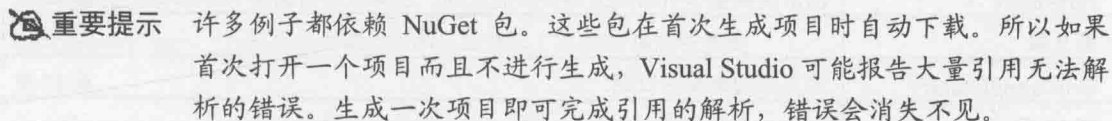 重要提示 许多例子都依赖 NuGet 包。这些包在首次生成项目时自动下载。所以如果
首次打开一个项目而且不进行生成，Visual Studio 可能报告大量引用无法解
析的错误。生成一次项目即可完成引用的解析，错误会消失不见。